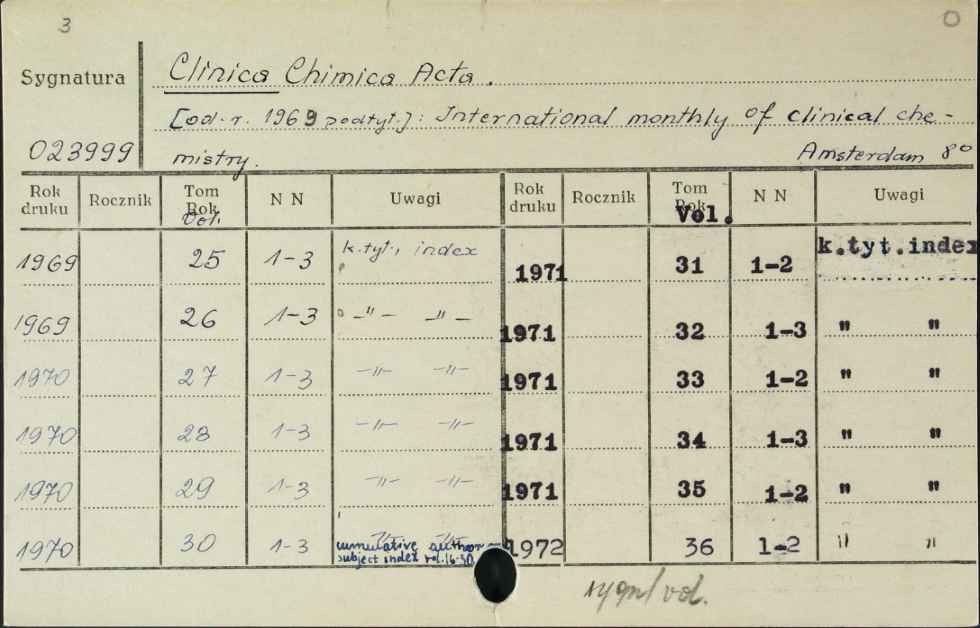 3
Sygnatura
Clinica Chimica Acta.
[od r. 1969 podtyt.]: International monthly of clinical che-
023999
mistry. Amsterdam 8°
Rok druku Rocznik Tom Rok Vol. N N Uwagi Rok druku Rocznik Tom Rok Vol. N N Uwagi
1969 25 1-3 k.tyt., index 1971 31 1-2 k.tyt.index
1969 26 1-3 -"- -"- 1971 32 1-3 " "
1970 27 1-3 -"- -"- 1971 33 1-2 " "
1970 28 1-3 -"- -"- 1971 34 1-3 " "
1970 29 1-3 -"- -"- 1971 35 1-2 " "
1970 30 1-3 cumulative author 1972 36 1-2 " "
subject index vol. 16-30
sygn/vol.